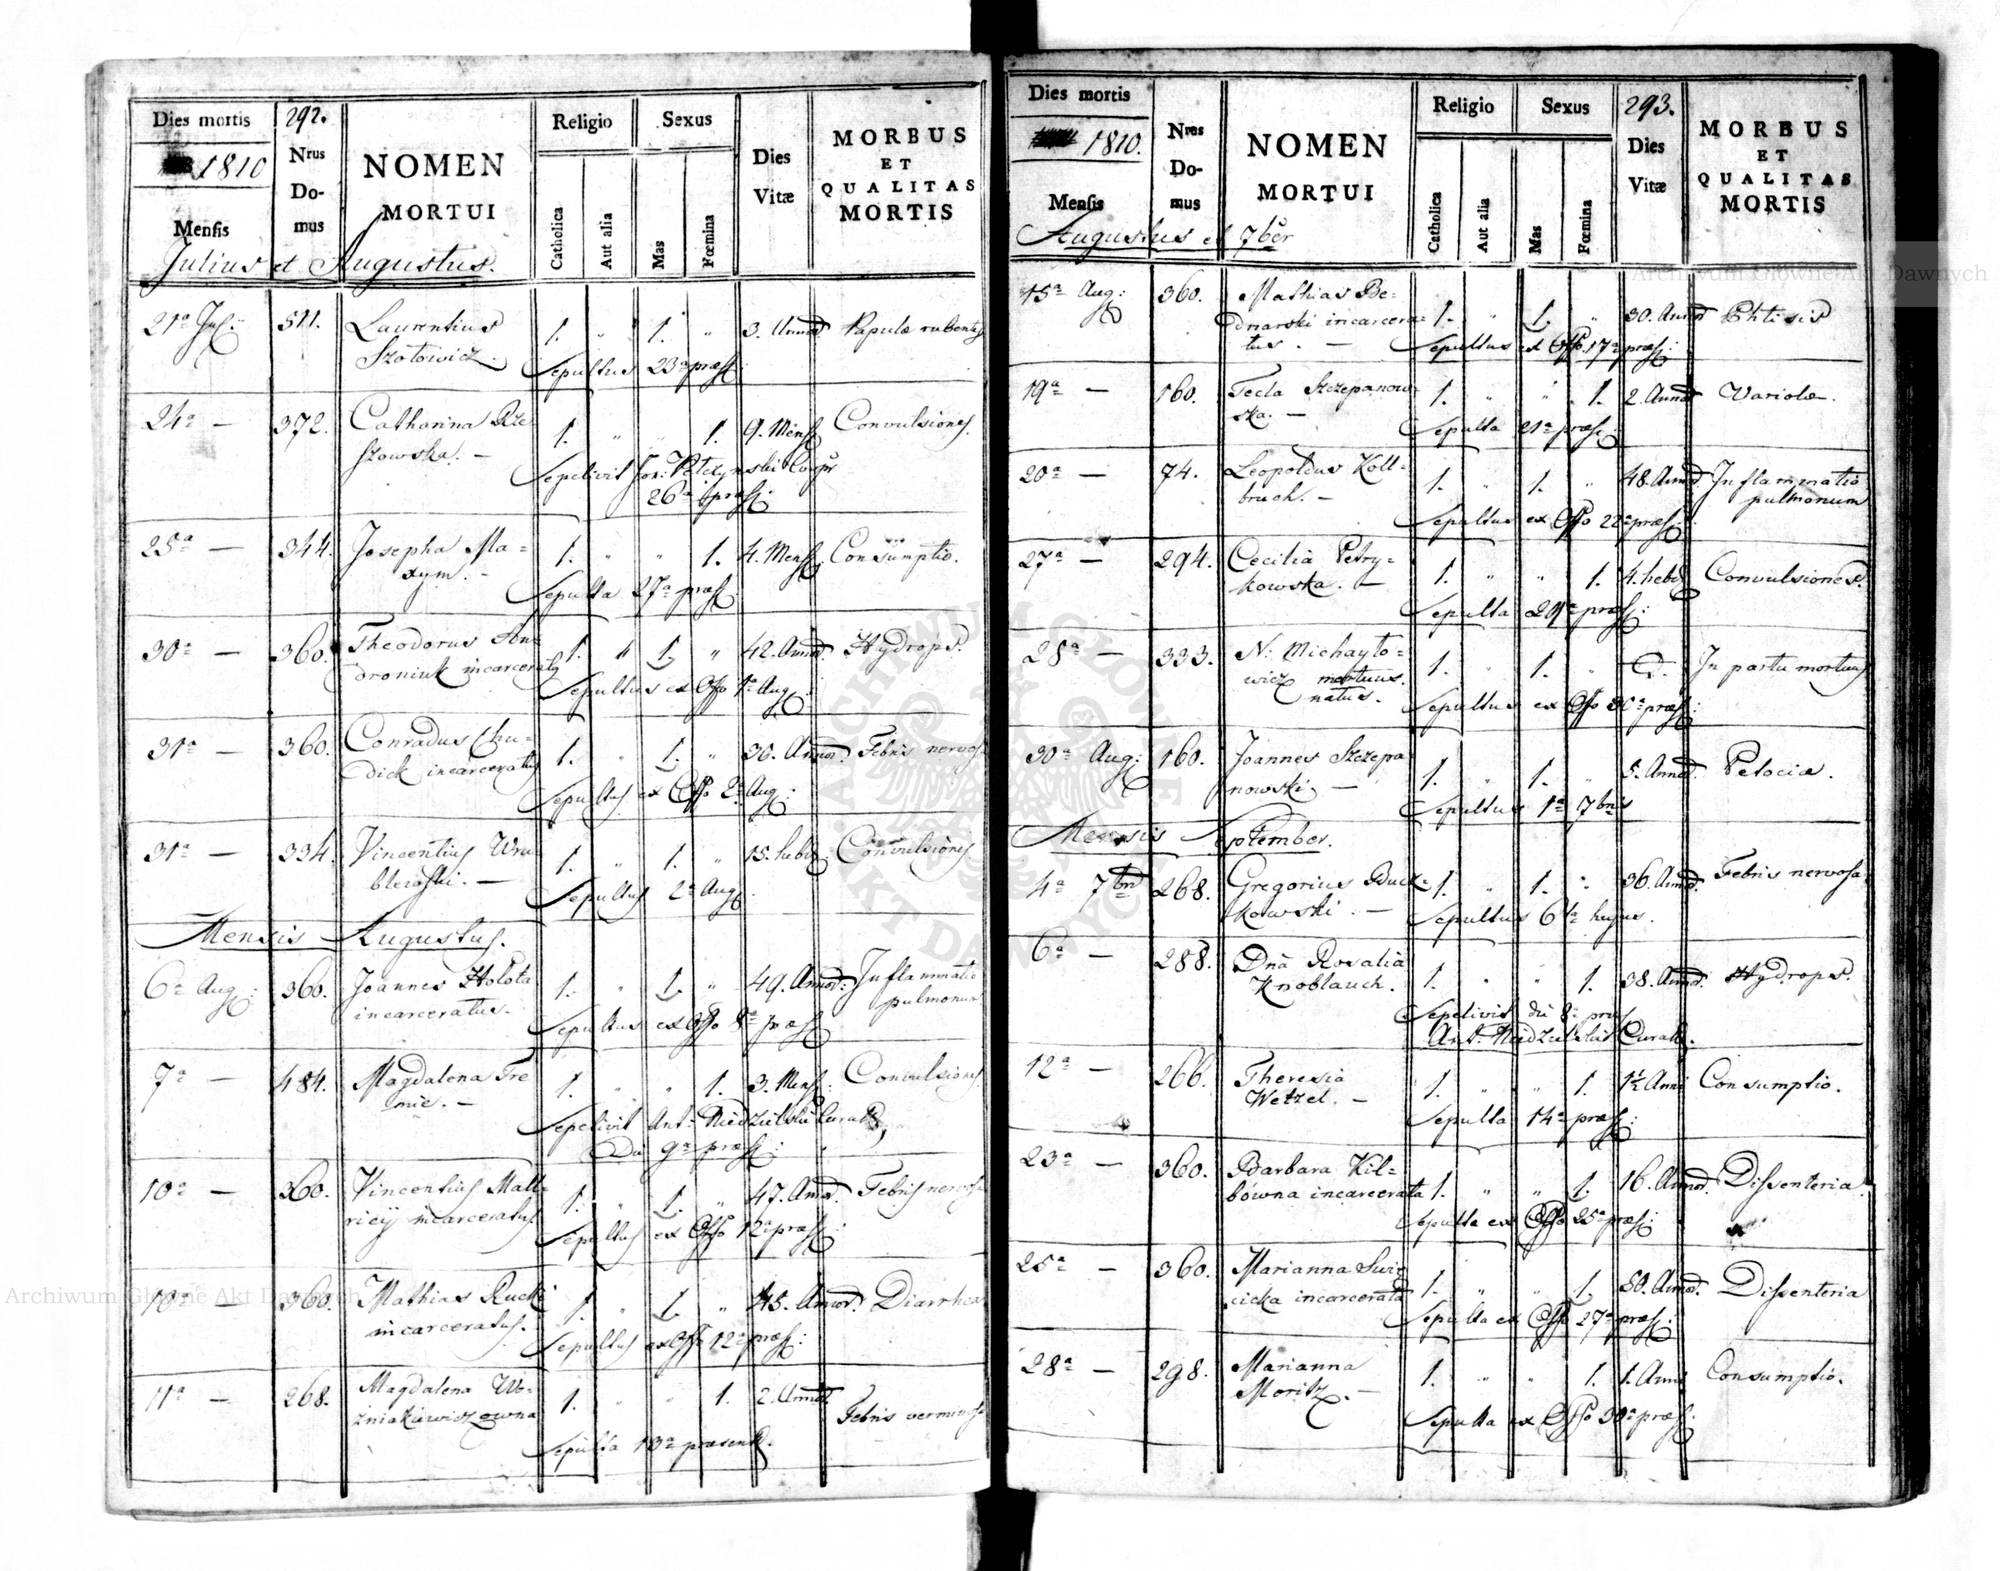 Dies mortis
1810
Mensis
292.
Nrus
Do-
mus
NOMEN
MORTUI
Religio
Catholica
Aut alia
Sexus
Mas
Fœmina
Dies
Vitæ
MORBUS
ET
QUALITAS
MORTIS
Julius et Augustus.
21a Jul: 511. Laurentius 1. " 1. " 3. Annor Papulæ rubentes
Szotowicz.
Sepultus 23a præs:
24a — 372. Catharina Rze 1. " " 1. 9. Mens: Convulsiones.
szowska. —
Sepelivit
26a præs:
25a — 344. Josepha Ma= 1. " " 1. 4. Mens: Consumptio.
xym. —
Sepulta 27a præs:
30a — 360. Theodorus An= 1. " 1. " 42. Annor. Hydrops.
droniuk incarceratus
Sepultus ex Offo 1a Aug:
31a — 360. Conradus Chu= 1. " 1. " 36. Annor. Febris nervosa
dick incarceratus
Sepultus ex Offo 2a Aug:
31a — 334. Vincentius Wru 1. " 1. " 15. hebd: Convulsiones
blewski. —
Sepultus 2a Aug:
Mensis Augustus.
6a Aug: 360. Joannes Hołota 1. " 1. " 49. Annor: Inflammatio
incarceratus. pulmonum
Sepultus ex Offo 8a præs:
7a — 484. Magdalena Tre 1. " " 1. 3. Mens: Convulsiones
mic. —
Sepelivit Ant: Niedzielski Curatus
Die 9a præs:
10a — 360. Vincentius Mall= 1. " 1. " 47. Annor. Febris nervosa
ricij incarceratus.
Sepultus ex Offo 12a præs:
10a — 360. Mathias Rucki 1. " 1. " 45. Annor. Diarrhea
incarceratus.
Sepultus ex Offo 12a præs:
11a — 268. Magdalena Wo= 1. " " 1. 2. Annor
zniakiewiczowna Febris verminosa
Sepulta 13a præsentis.
Dies mortis
1810.
Mensis
Nrus
Do-
mus
NOMEN
MORTUI
Religio
Catholica
Aut alia
Sexus
Mas
Fœmina
293.
Dies
Vitæ
MORBUS
ET
QUALITAS
MORTIS
Augustus et 7ber
15a Aug: 360. Mathias Be= 1. " 1. " 30. Annor Phtisis
dnarski incarcera=
tus. —
Sepultus ex Offo 17a præs:
19a — 160. Tecla Szczepanow= 1. " " 1. 2. Annor Variolæ.
ska. —
Sepulta 21a præs:
20a — 74. Leopoldus Koll= 1. " 1. " 48. Annor. Inflammatio
bruch. — pulmonum
Sepultus ex Offo 22a præs:
27a — 294. Cecilia Petry= 1. " " 1. 4. hebd Convulsiones.
kowska. —
Sepulta 29a præs:
28a — 333. N: Michayło= 1. " 1. " In partu mortuus
wicz mortuus.
natus.
Sepultus ex Offo 30a præs:
30a Aug: 160. Joannes Szczepa 1. " 1. " 5. Annor. Petociæ.
nowski. —
Sepultus 1a 7bris
Mensis September.
4a 7bris 268. Gregorius Buck= 1. " 1. " 36. Annor. Febris nervosa
kowski. —
Sepultus 6ta hujus.
6a — 288. Dna Rosalia 1. " " 1. 38. Annor. Hydrops.
Knoblauch.
Sepelivit die 8a præs
Ant: Niedzielski Curatus.
12a — 266. Theresia 1. " " 1. 1½ Anni Consumptio.
Wetzel. —
Sepulta 14a præs:
23a — 360. Barbara Kil= 1. " " 1. 16. Annor. Dissenteria.
bówna incarcerata
Sepulta ex Offo 25a præs:
25a — 360. Marianna Swie 1. " " 1. 50. Annor. Dissenteria
cicka incarcerata
Sepulta ex Offo 27a præs:
28a — 298. Marianna 1. " " 1. 1. Anni Consumptio.
Moritz. —
Sepulta ex Offo 30a præs:
Archiwum Główne Akt Dawnych
Archiwum Główne Akt Dawnych
ARCHIWUM GŁÓWNE AKT DAWNYCH